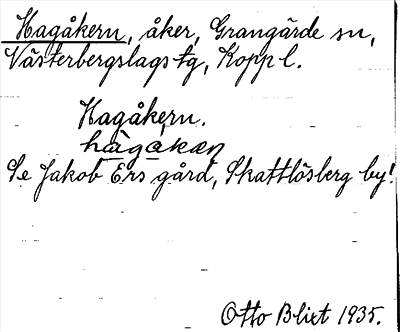 Hagåkern, åker, Grangärde sn,
Västerbergslags tg, Kopp l.
Hagåkern.
hagåkæṇ
Se Jakob Ers gård, Skattlösberg by!
Otto Blixt 1935.